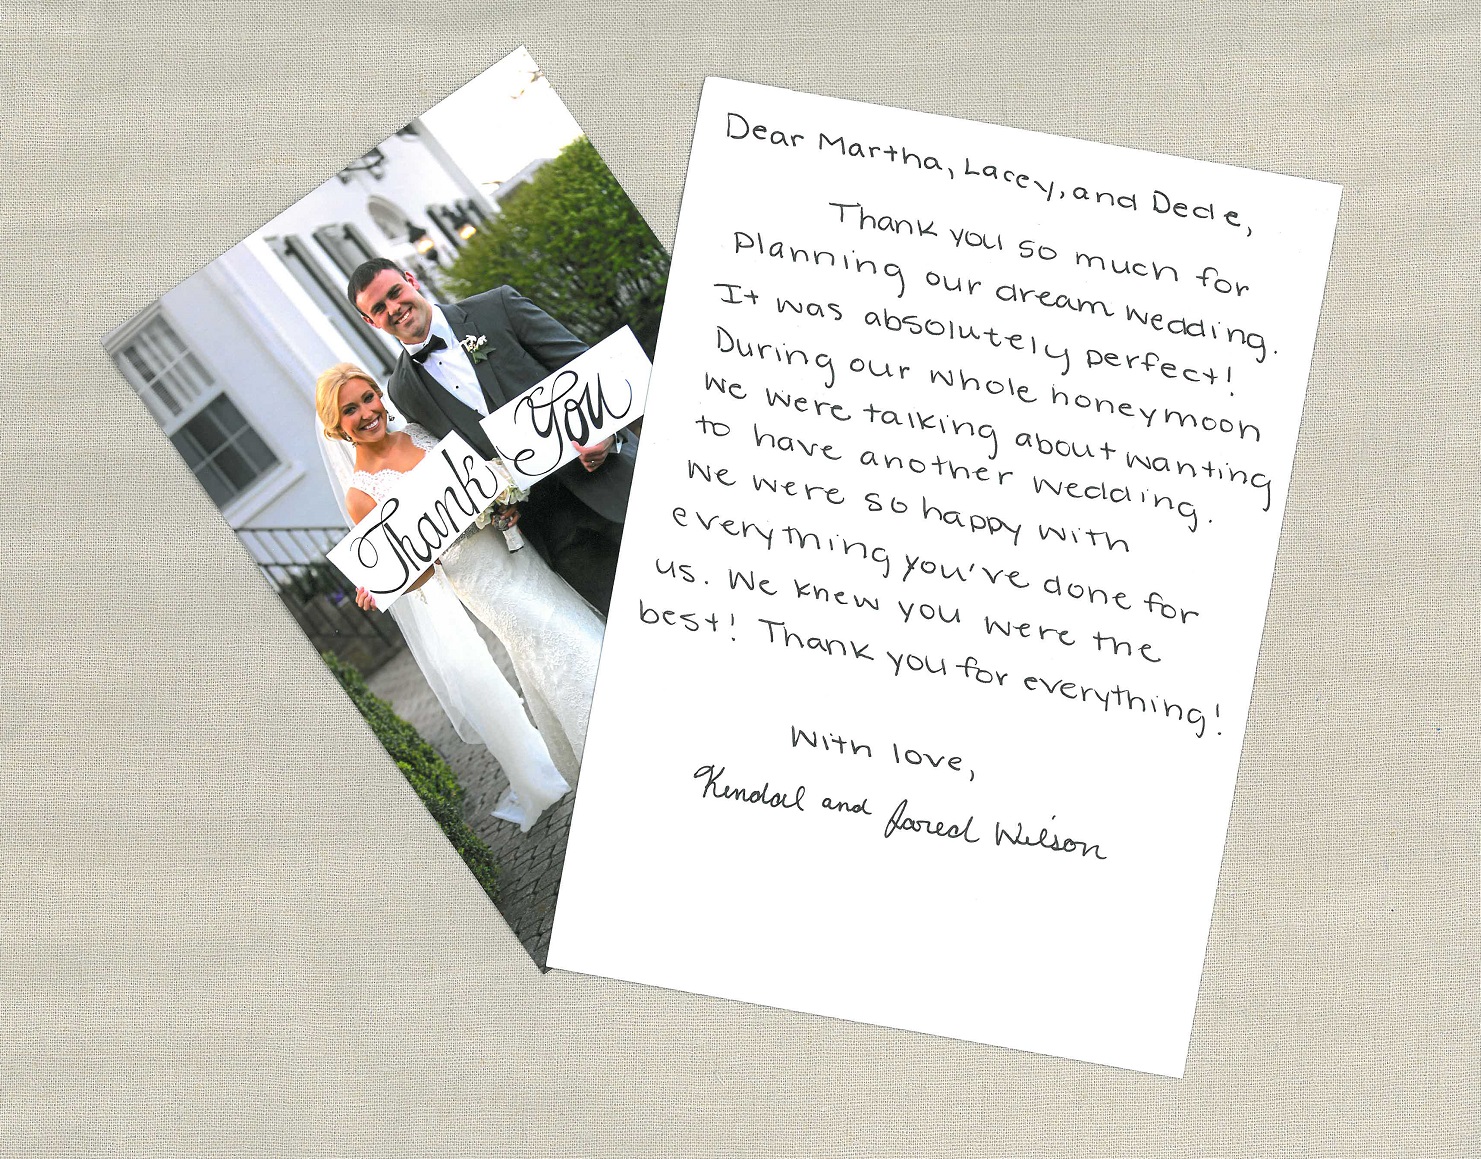 Thank
You
Dear Martha, Lacey, and Dede,
Thank you so much for
planning our dream wedding.
It was absolutely perfect!
During our whole honeymoon
we were talking about wanting
to have another wedding.
We were so happy with
everything you've done for
us. We knew you were the
best! Thank you for everything!
With love,
Kendal and Jared Wilson